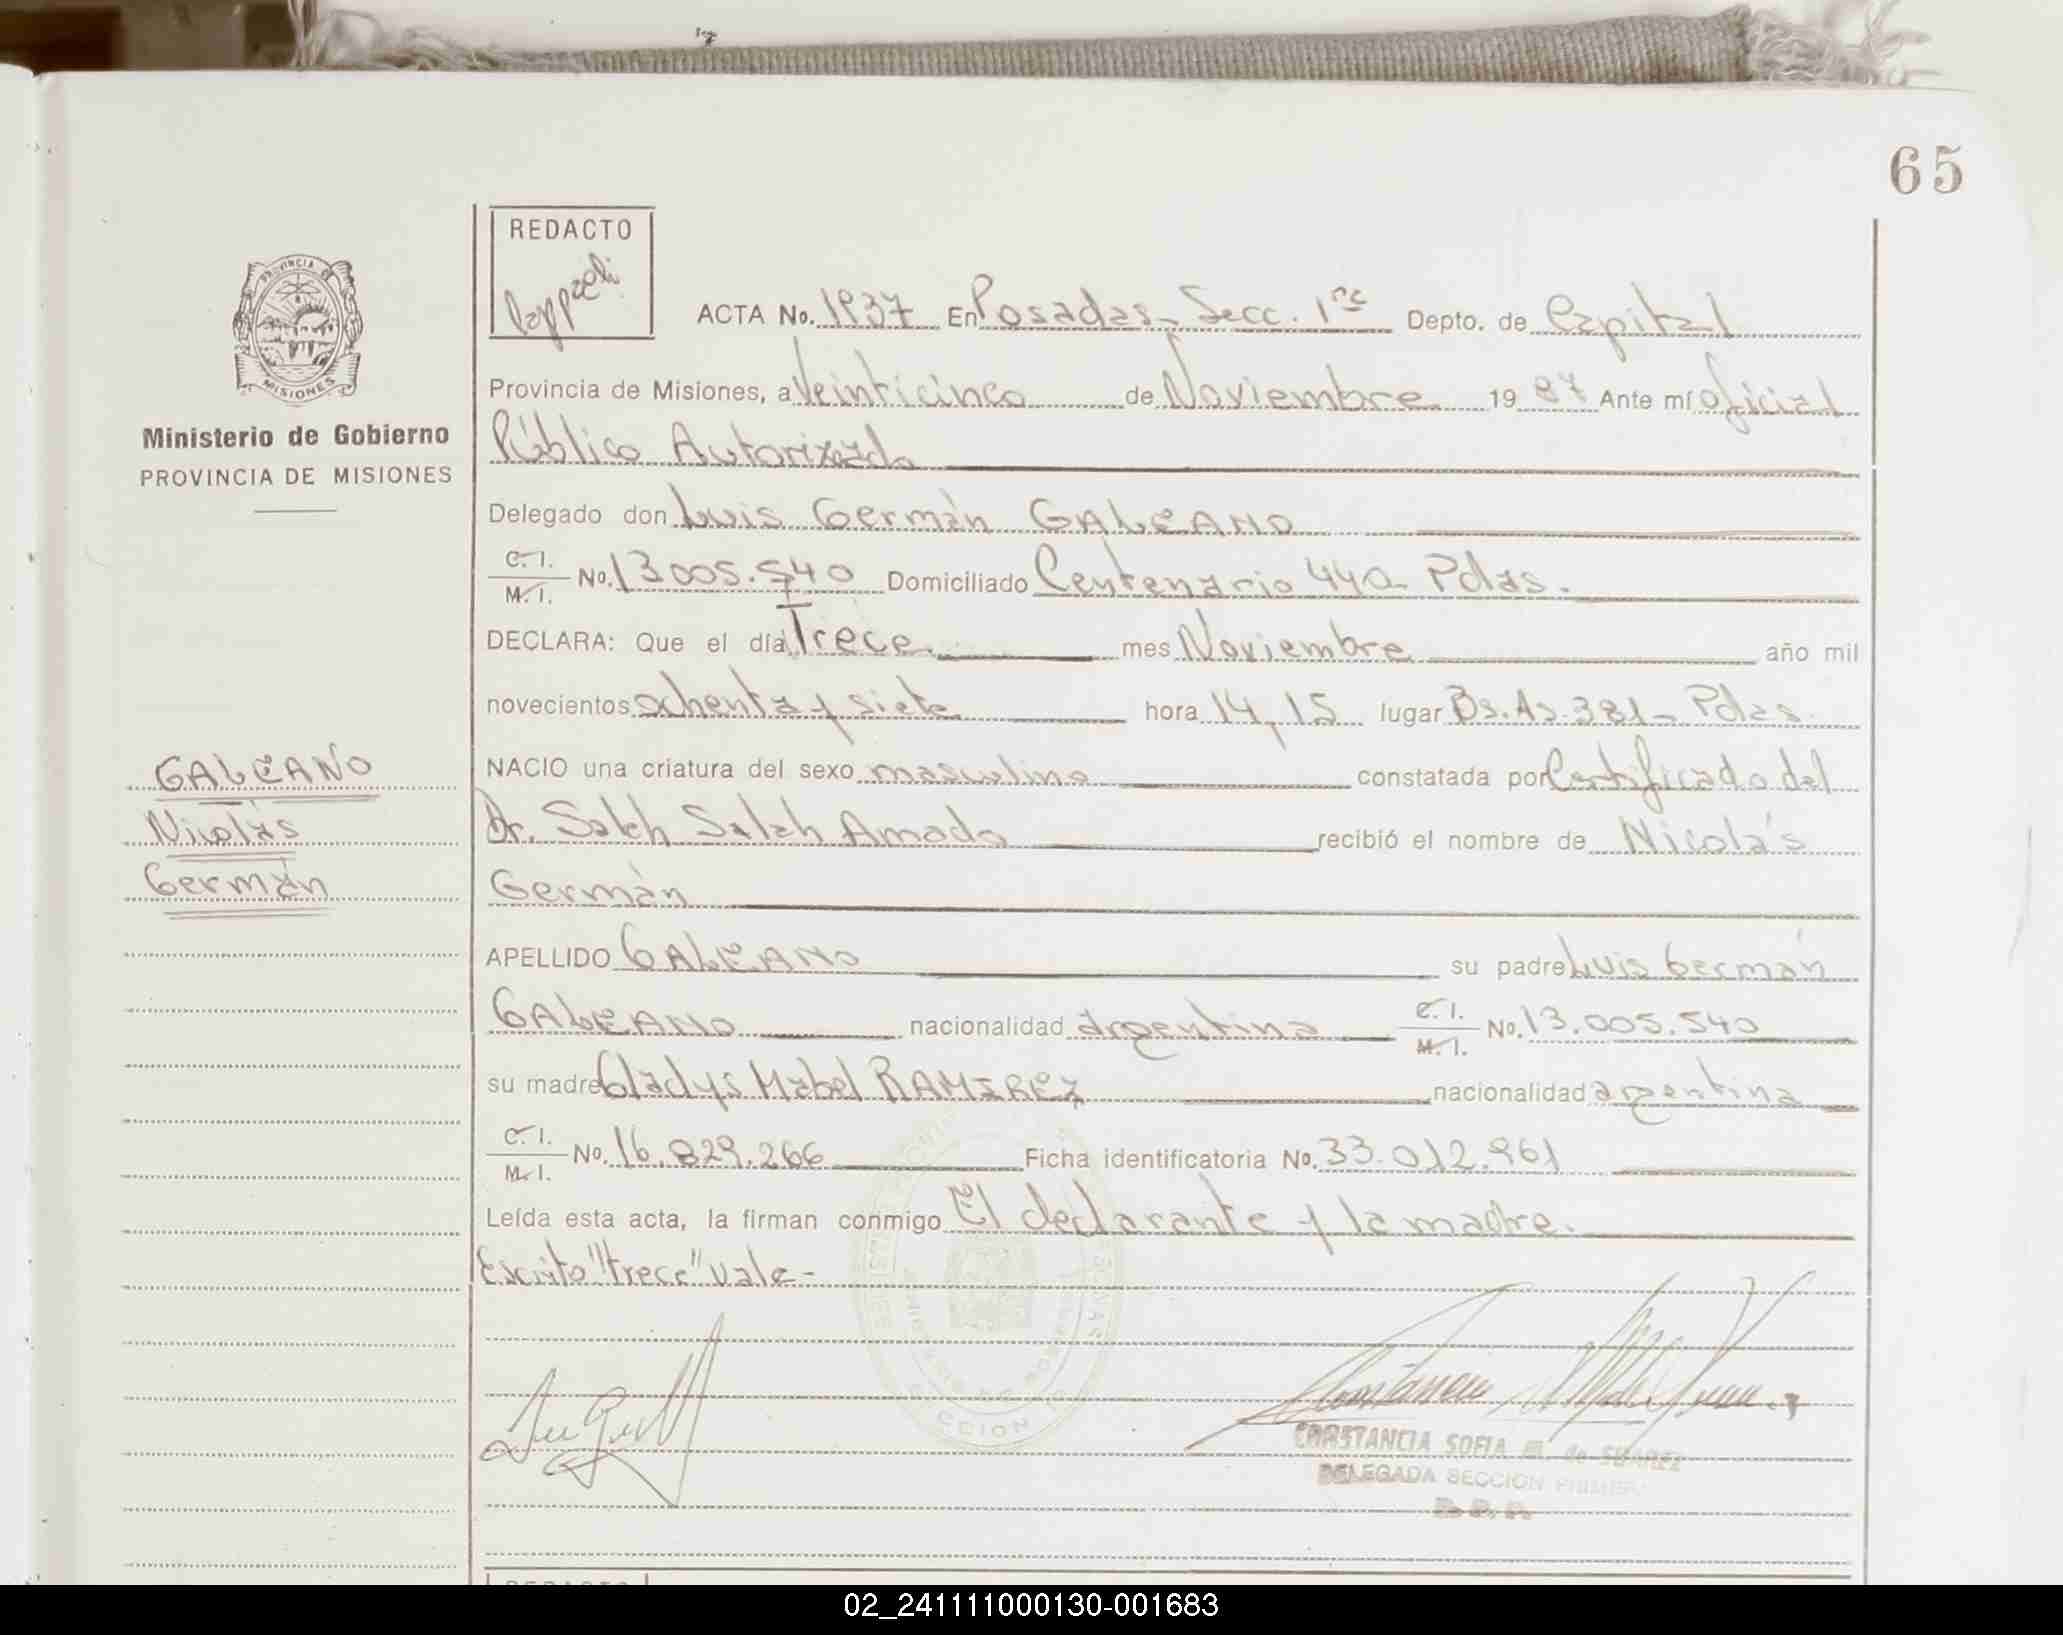 65
REDACTO
PROVINCIA DE
MISIONES
Ministerio de Gobierno
PROVINCIA DE MISIONES
ACTA No. 1937 En Posadas - Secc. 1ra Depto. de Capital
Provincia de Misiones, a Veinticinco de Noviembre 19 87 Ante mí oficial
Público Autorizado
Delegado don Luis Germán GALEANO
C. I. / M. I. No. 13.005.540 Domiciliado Centenario 440 - Pdas.
DECLARA: Que el día Trece mes Noviembre año mil
novecientos ochenta y siete hora 14,15 lugar Bs. As. 381 - Pdas.
NACIO una criatura del sexo masculino constatada por Certificado del
Dr. Saleh Saleh Amado recibió el nombre de Nicolás
Germán
APELLIDO GALEANO su padre Luis Germán
GALEANO nacionalidad argentina C. I. / M. I. No. 13.005.540
su madre Gladys Mabel RAMIREZ nacionalidad argentina
C. I. / M. I. No. 16.829.266 Ficha identificatoria No. 33.012.961
Leída esta acta, la firman conmigo El declarante y la madre.
Escrito "trece" vale -
GALEANO
Nicolás
Germán
CONSTANCIA SOFIA M. de SUAREZ
DELEGADA SECCION PRIMERA
02_241111000130-001683